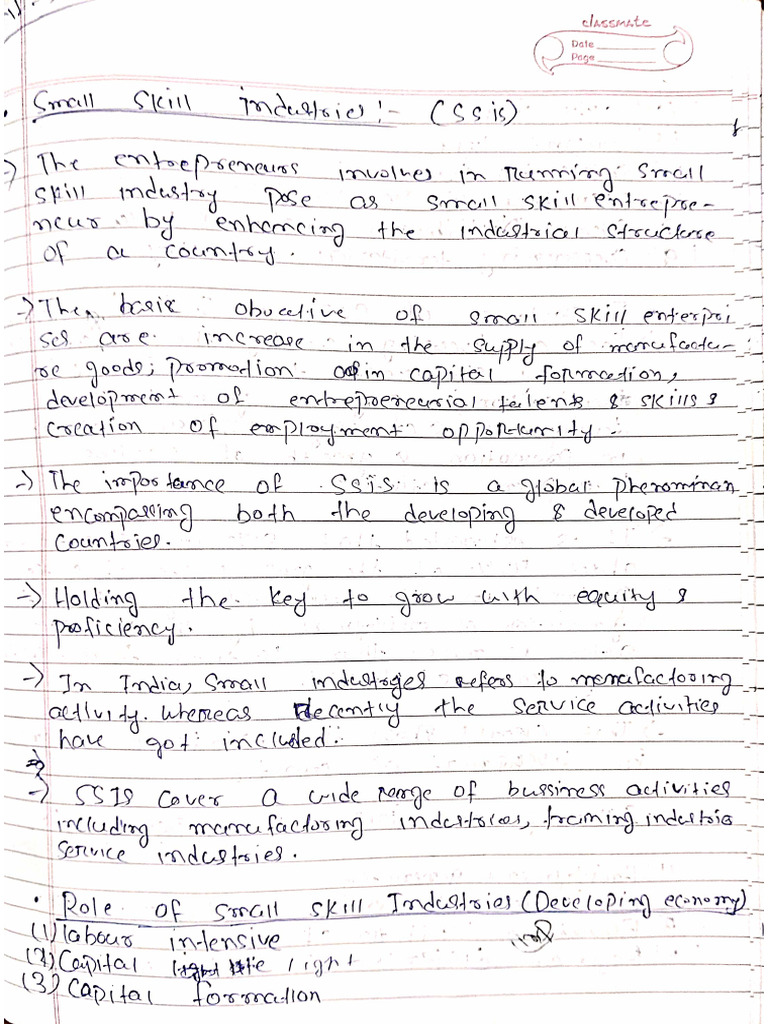 classmate
Date
Page
• Small Skill industries :- (SSIS)
→ The entrepreneurs involves in running small
skill industry pose as small skill entrepre-
neur by enhancing the industrial structure
of a country.
→ The basic obvective of small skill enterpri
ses are increase in the supply of manufactu-
re goods, promotion in capital formation,
development of entrepreneurial talents & skills &
creation of employment opportunity.
→ The importance of SSIS is a global phenominan
encompassing both the developing & developed
countries.
→ Holding the key to grow with equity &
proficiency.
→ In India, small industries refers to manufactoring
activity. whereas recently the service activities
have got included.
→ SSIS cover a wide range of bussiness activities
including manufactoring industries, framing industrie
service industries.
• Role of small skill Industries (Developing economy)
(1) labour intensive
(2) Capital light
(3) Capital formation